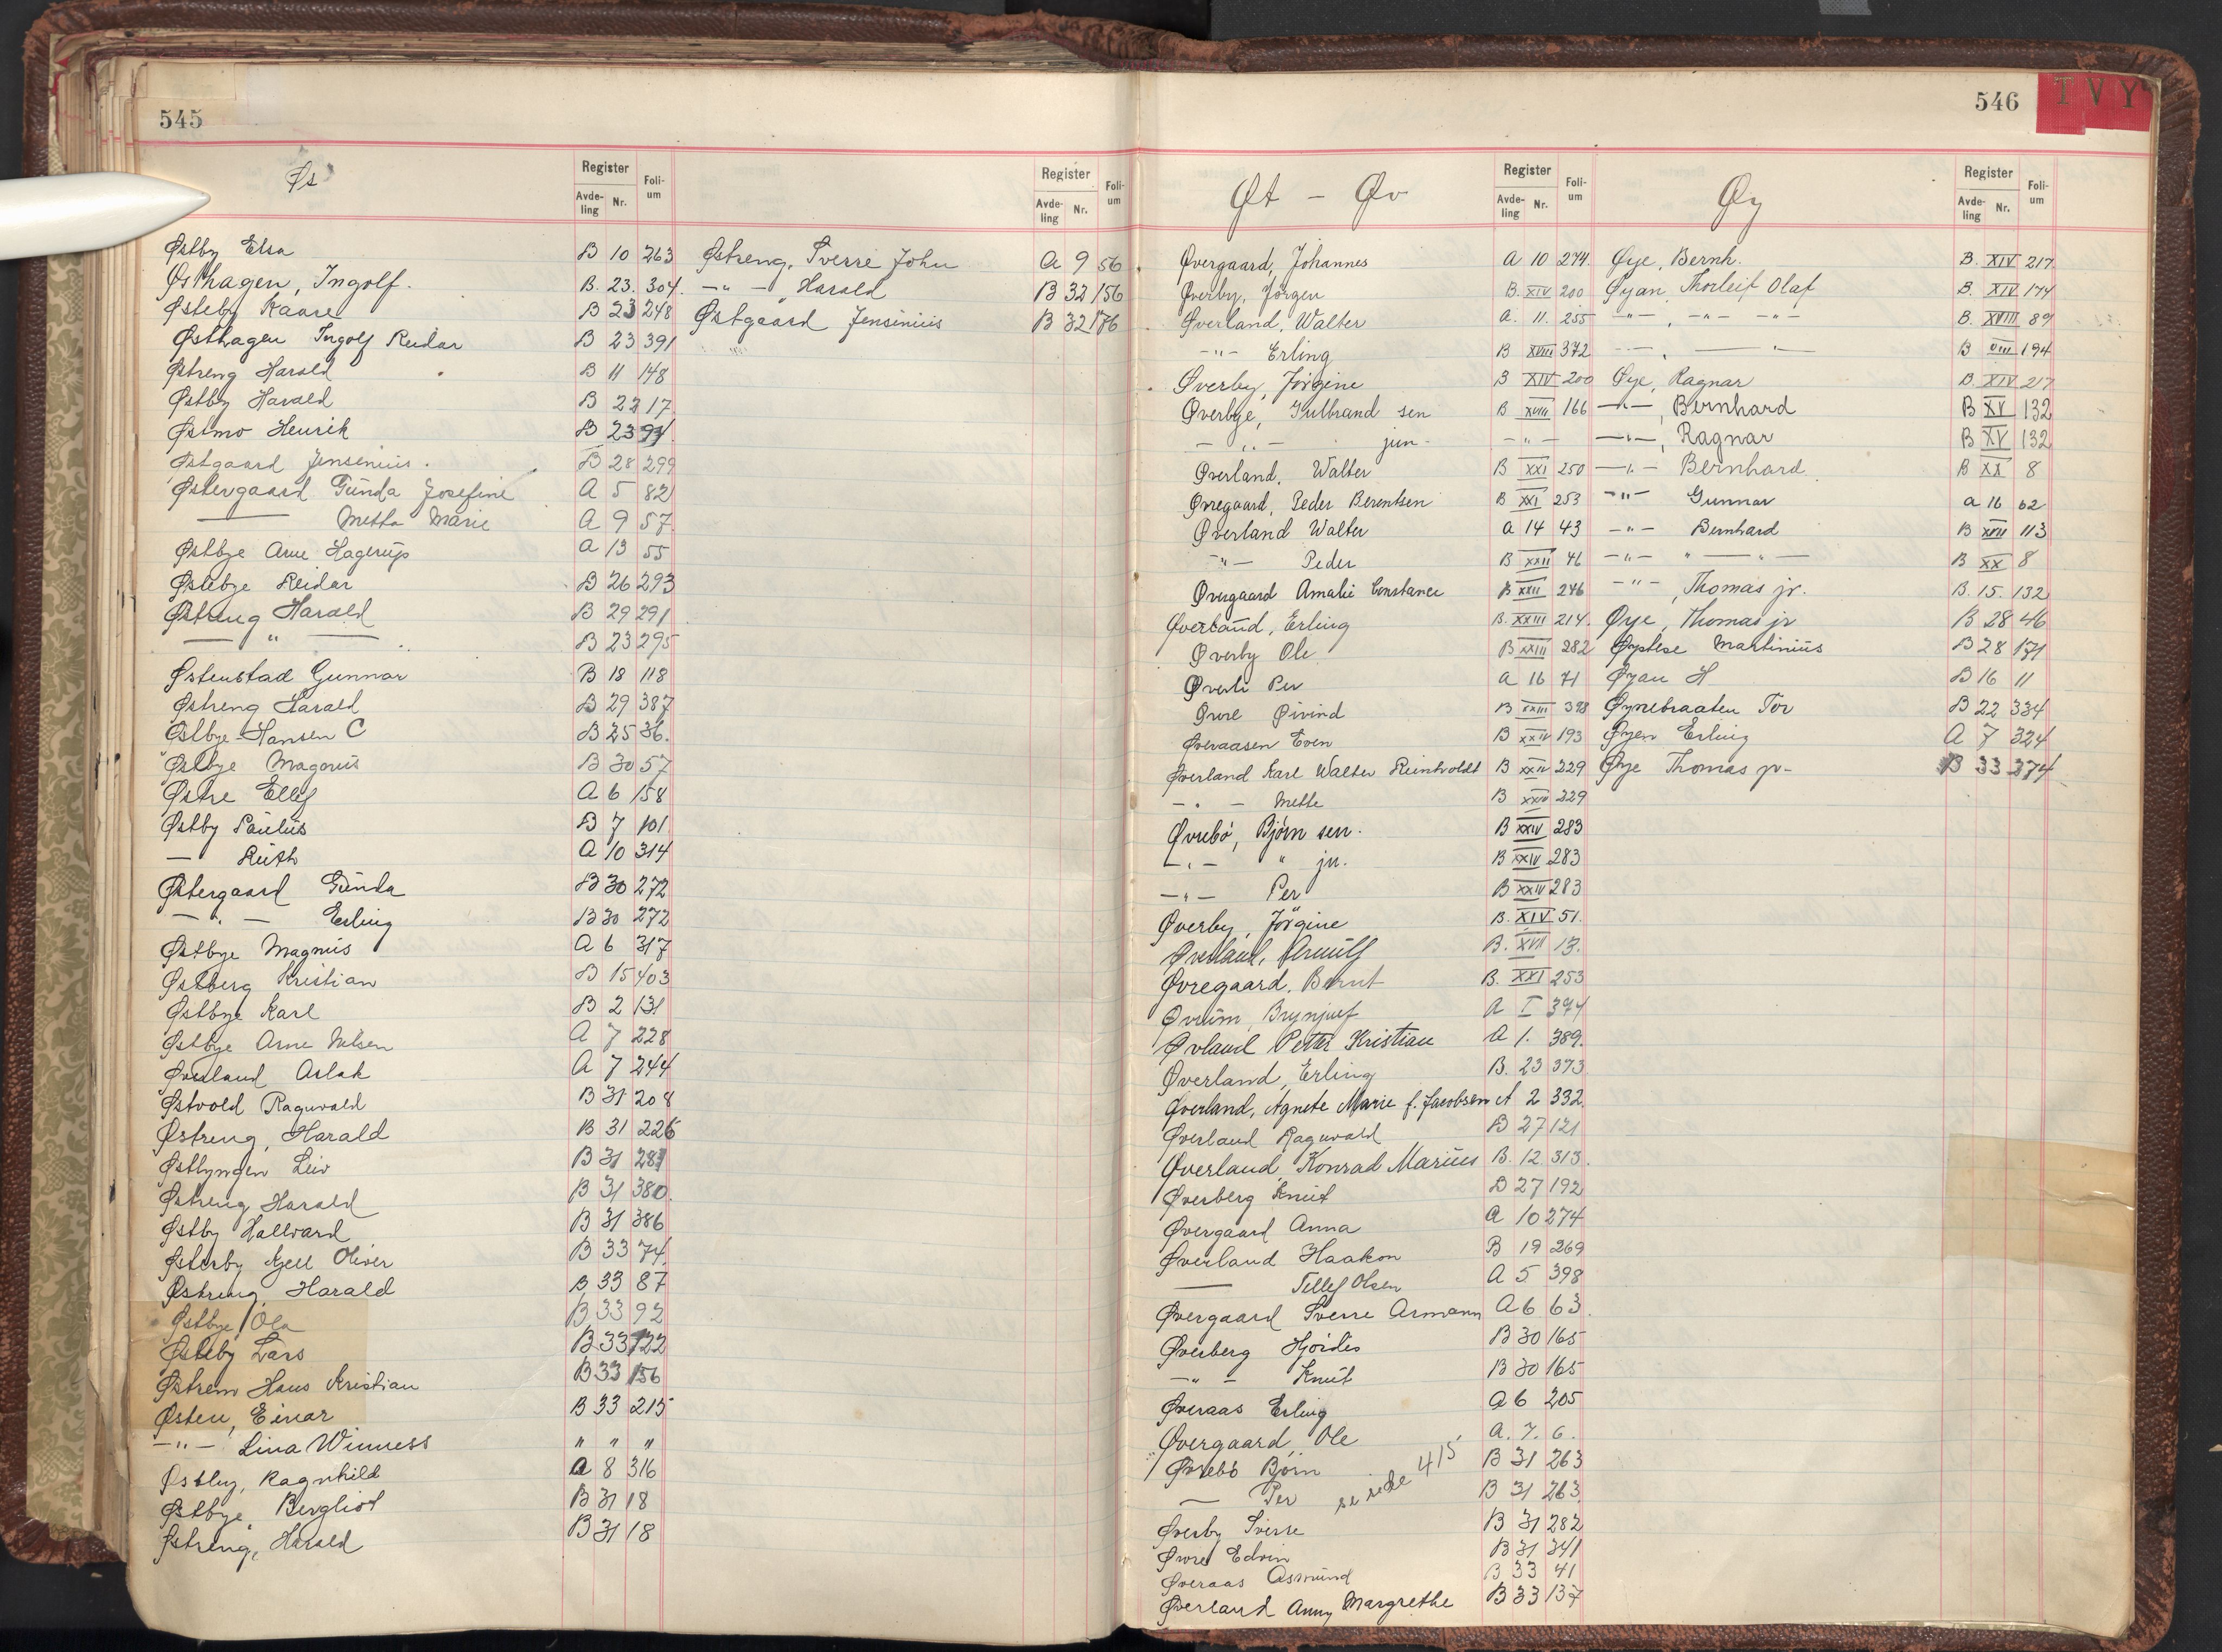 545
Øs
Register
Avde-ling Nr.
Foli-um
Østby Elsa B 10 263
Østhagen, Ingolf. B. 23. 304.
Østeby Kaare B 23 248
Østhagen Ingolf Reidar B 23 391
Østreng Harald B 11 148
Østby Harald B 22 17
Østmo Henrik B 23 94
Østgaard Jensenius. B 28 299
Østergaard Gunda Josefine A 5 82
—— Metta Marie A 9 57
Østbye Arne Hagerup A 13 55
Østebye Reidar B 26 293
Østreng Harald B 29 291
— " — B 23 295
Østenstad Gunnar B 18 118
Østreng Harald B 29 387
Østbye-Hansen C B 25 36.
Østbye Magnus B 30 57
Østre Ellef A 6 158
Østby Paulus B 7 101
— Ruth A 10 314
Østergaard Gunda B 30 272
— " — Erling B 30 272
Østbye Magnus A 6 317
Østberg Kristian B 15 403
Østbye Karl B 2 131
Østbye Arne Nilsen A 7 228
Øverland Aslak A 7 244
Østvold Ragnvald B 31 208
Østreng, Harald B 31 226
Østlyngen Leiv B 31 281
Østreng Harald B 31 380.
Østby Hallvard B 31 386
Østerby Kjell Oliver B 33 74
Østreng Harald B 33 87
Østbye, Ola B 33 92
Østeby Lars B 33 122
Østrem Hans Kristian B 33 156
Østen, Einar B 33 215
— " — Lina Winness " " "
Østby, Ragnhild A 8 316
Østbye, Bergliot B 31 18
Østreng, Harald B 31 18
Register
Avde-ling Nr.
Foli-um
Østreng, Sverre John A 9 56
— " — Harald B 32 156
Østgaard Jensinius B 32 176
546
T V Y
Øt – Øv
Register
Avde-ling Nr.
Foli-um
Øvergaard, Johannes A 10 274.
Øverby, Jørgen B. XIV 200
Øverland, Walter A. 11. 255
— " — Erling B XVIII 372
Øverby, Jørgine B XIV 200
Øverbye, Gulbrand sen B XVIII 166
— " — jun. — " —
Øverland, Walter B XXI 250
Øvregaard, Peder Berentsen B XXI 253
Øverland Walter A 14 43
— " — Peder B XXII 46
Øvergaard Amalie Constance B XXII 246
Øverland, Erling B. XXIII 214.
Øverby Ole B XXIII 282
Øverli Per A 16 71
Øvre Øivind B XXIII 398
Øveraasen Even B XXIV 193
Øverland Karl Walter Reinholdt B XXIV 229
— " — Mette B XXIV 229
Øvrebø, Bjørn sen. B XXIV 283
— " — " jn. B XXIV 283
— " — Per B XXIV 283
Øverby, Jørgine B. XIV 51.
Øverland, Arnulf B. XVII 13.
Øvregaard, Bernt B. XXI 253
Øvrum, Brynjulf A I 374
Øvland Petter Kristian A 1. 389.
Øverland, Erling B. 23 373
Øverland, Agnete Marie f. Jacobsen A 2 332.
Øverland Ragnvald B 27 121
Øverland Konrad Marius B. 12. 313.
Øverberg Knut B 27 192
Øvergaard Anna A 10 274
Øverland Haakon B 19 269
—— Tellef Olsen A 5 398
Øvergaard Sverre Armann A 6 63.
Øverberg Hjørdis B 30 165
— " — Knut B 30 165
Øveraas Erling A 6 205
Øvergaard, Ole A. 7. 6.
Øvrebø Bjørn B 31 263
— Per B 31 263.
se side 415
Øverby Sverre B 31 282
Øvre Edvin B 31 341
Øveraas Asmund B 33 41
Øverland Anny Margrethe B 33 137
Øy
Register
Avde-ling Nr.
Foli-um
Øye, Bernh. B. XIV 217
Øyan, Thorleif Olaf B. XIV 174
— " — , — " — — " — B. XVIII 89
— — , —— " — B VIII 194
Øye, Ragnar B. XIV 217
— " — , Bernhard B XV 132
— " — , Ragnar B XV 132
— " — Bernhard B XX 8
— " — Gunnar A 16 62
— " — Bernhard B XVII 113
— " — " — " — B XX 8
— " — , Thomas jr. B. 15. 132
Øye, Thomas jr B 28 46
Øystese Martinius B 28 171
Øyan H B 16 11
Øynebraaten Tor B 22 334
Øyen Erling A 7 324
Øye Thomas jr- B 33 274